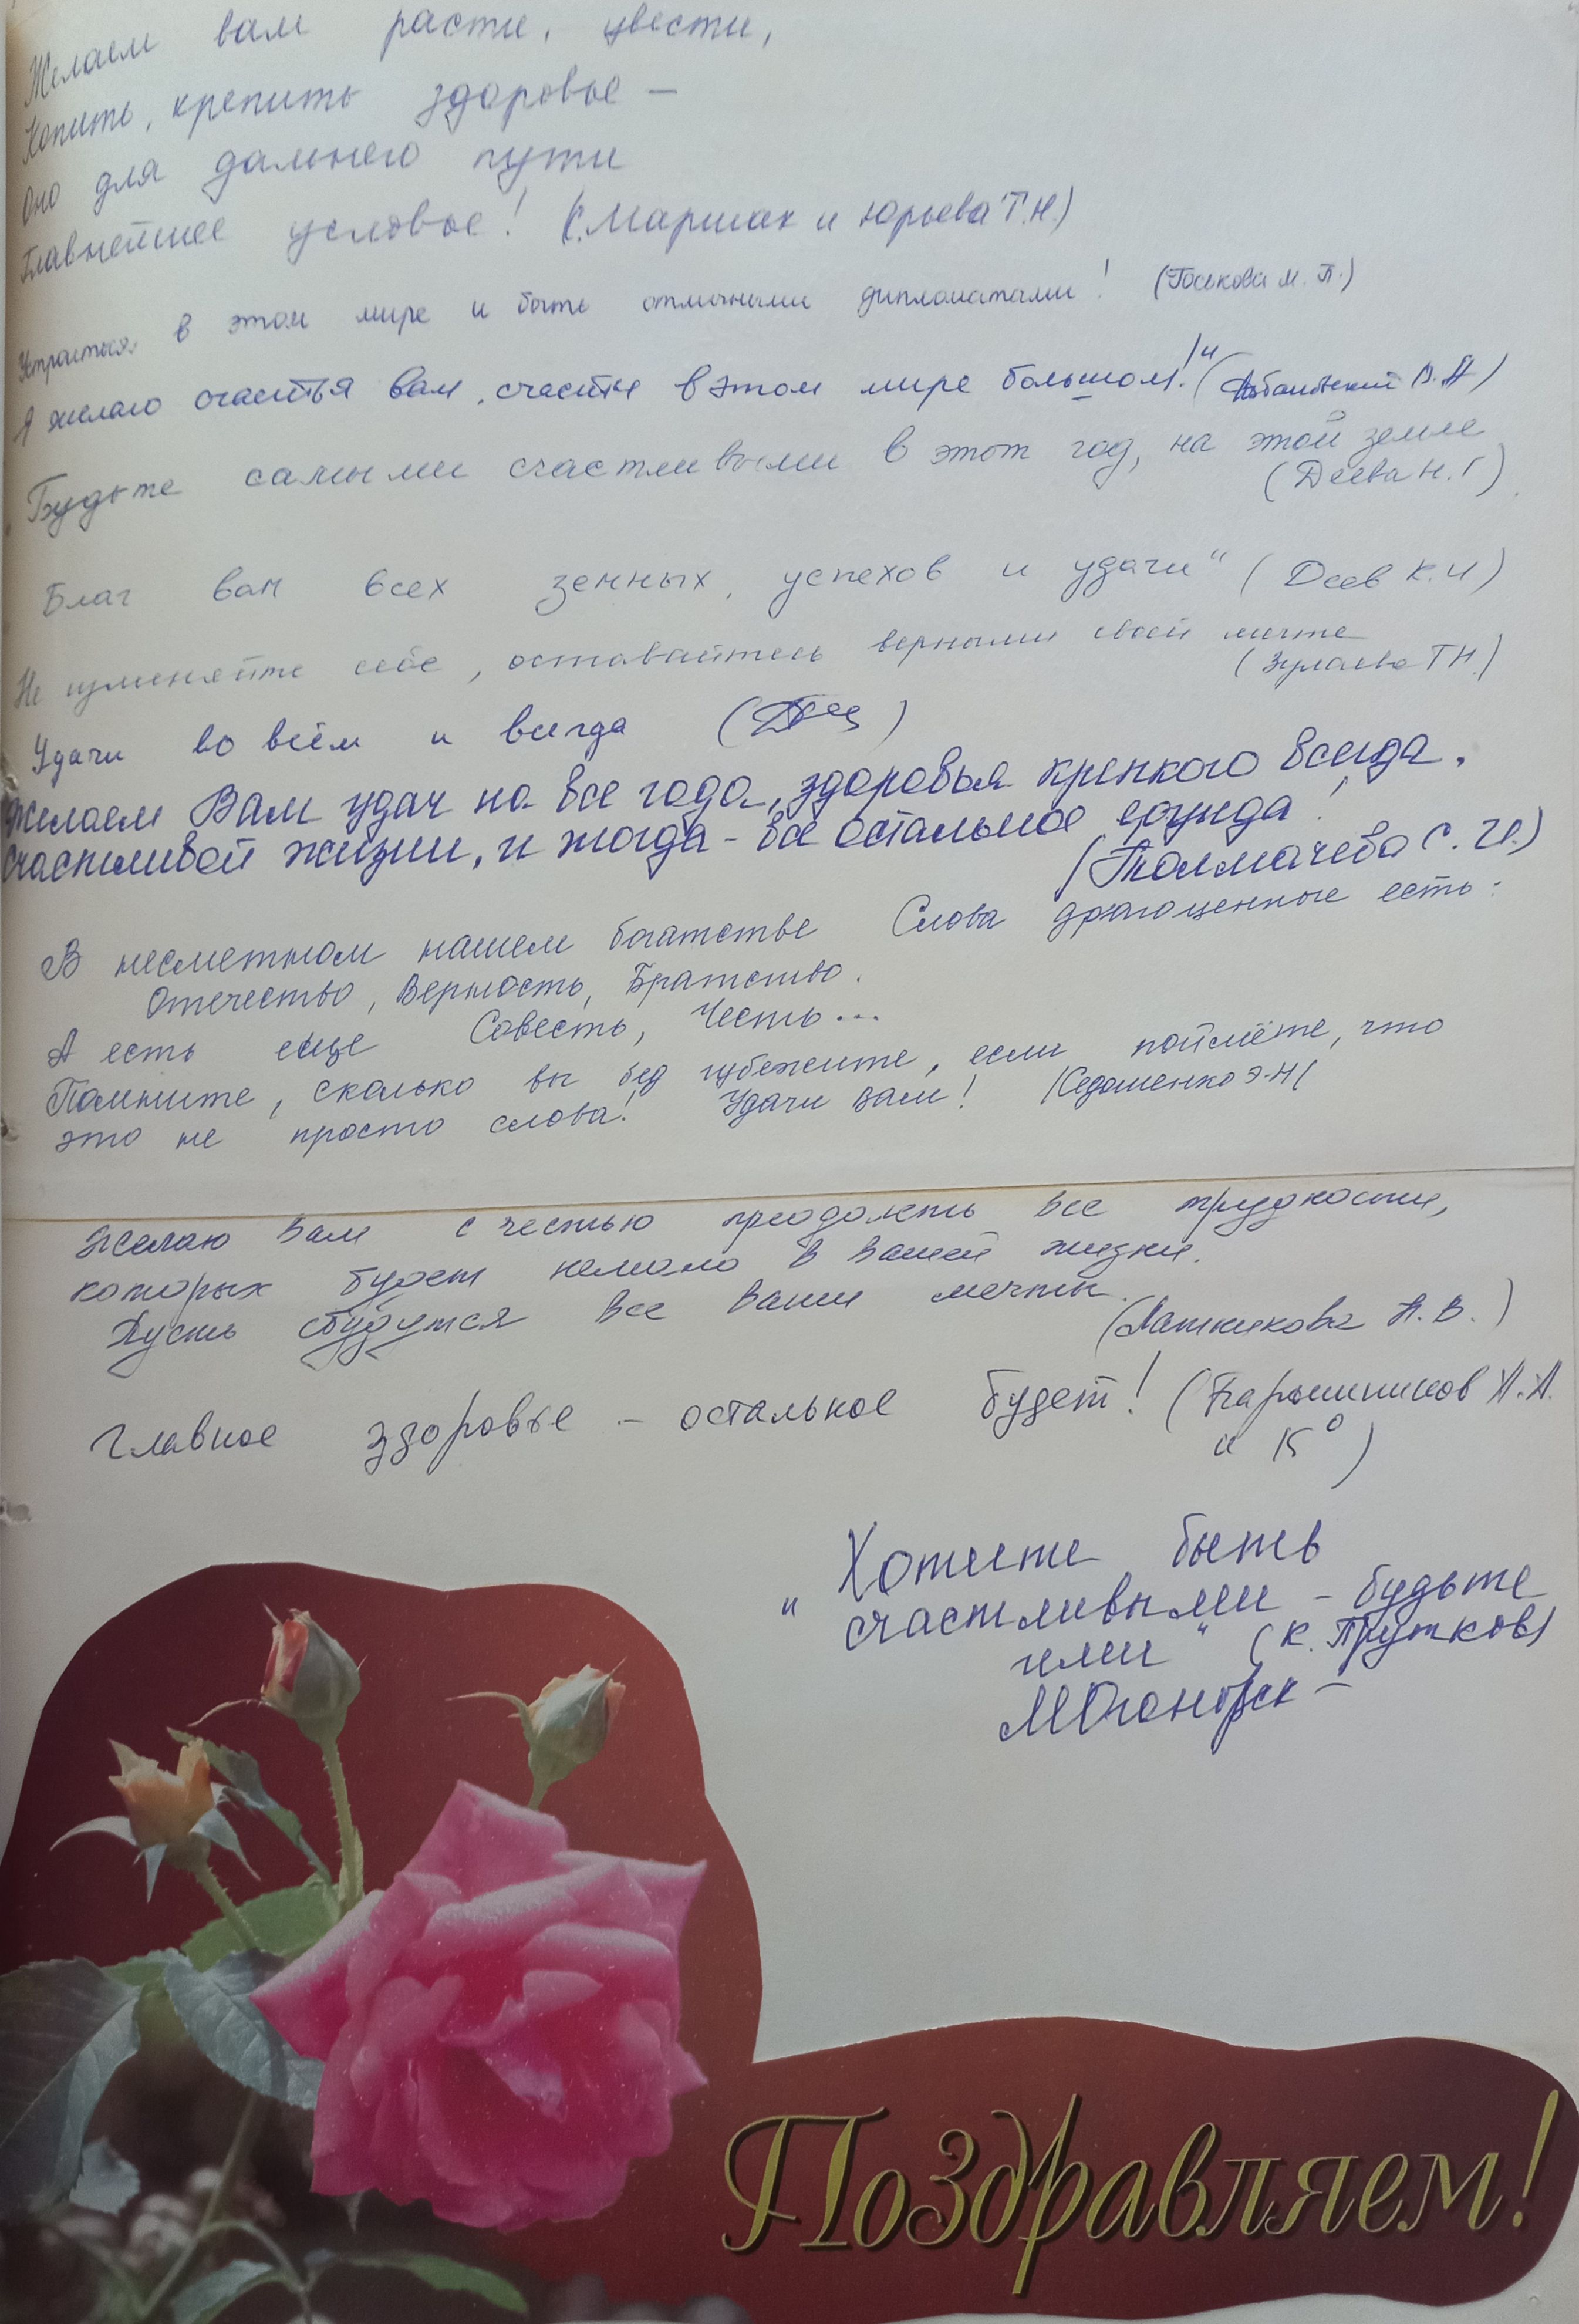 Желаем вам расти, цвести,
Копить, крепить здоровье –
Оно для дальнего пути
Главнейшее условье! (С. Маршак и Юрьева Т.Н.)
Устроиться в этом мире и быть отличными дипломатами! (М. П.)
Я желаю счастья вам, счастья в этом мире большом!" (В.А)
Будьте самыми счастливыми в этот год, на этой земле
(Деева Н. Г)
Благ вам всех земных, успехов и удачи" (Деев К.И)
Не изменяйте себе, оставайтесь верными своей мечте
(Т Н.)
Удачи во всём и всегда
Желаем Вам удач на все года, здоровья крепкого всегда,
Счастливой жизни, и тогда – все остальное ерунда!
(Толмачева С. И.)
В несметном нашем богатстве Слова драгоценные есть:
Отечество, Верность, Братство.
А есть еще Совесть, Честь...
Помните, сколько вы бед избежите, если поймёте, что
это не просто слова! Удачи Вам! /Седашенко Э.Н/
Желаю Вам с честью преодолеть все трудности,
которых будет немало в вашей жизни.
Пусть сбудутся все Ваши мечты.
(Лашникова А. В.)
Главное здоровье – остальное будет! (Барышников А.А.
и К°)
"Хотите быть
счастливыми – будьте
ими" (К. Прутков)
Поздравляем!